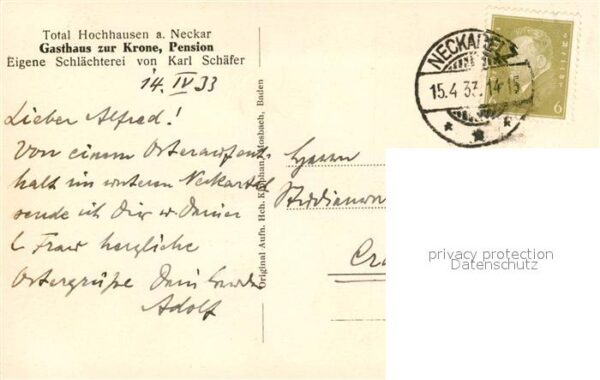 Total Hochhausen a. Neckar
Gasthaus zur Krone, Pension
Eigene Schlächterei von Karl Schäfer
14. IV 33
Lieber Alfred!
Von einem Osteraufent-
halt im unteren Neckartal
sende ich Dir u Deiner
l Frau herzliche
Ostergrüße Dein
Adolf
Original Aufn. Hch. Mosbach, Baden
NECKARELZ
15.4.33.14-15
6
Herrn
privacy protection
Datenschutz